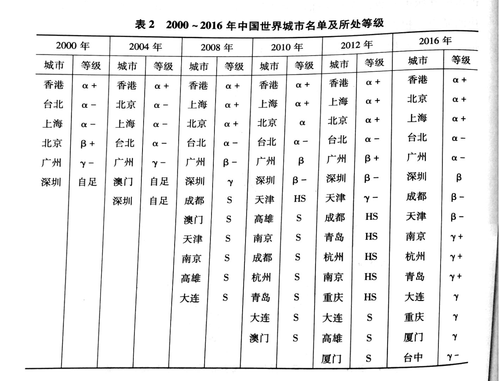 表 2 2000～2016 年中国世界城市名单及所处等级
2000 年 2004 年 2008 年 2010 年 2012 年 2016 年
城市 等级 城市 等级 城市 等级 城市 等级 城市 等级 城市 等级
香港 α+ 香港 α+ 香港 α+ 香港 α+ 香港 α+ 香港 α+
台北 α- 北京 α- 上海 α+ 上海 α+ 上海 α+ 北京 α+
上海 α- 上海 α- 北京 α+ 北京 α 北京 α+ 上海 α+
北京 β+ 台北 α- 台北 α- 台北 α- 台北 α- 台北 α-
广州 γ- 广州 γ- 广州 β- 广州 β 广州 β+ 广州 α-
深圳 自足 澳门 自足 深圳 γ 深圳 β- 深圳 β- 深圳 β
深圳 自足 成都 S 天津 HS 天津 γ- 成都 β-
澳门 S 高雄 S 成都 HS 天津 β-
天津 S 南京 S 青岛 HS 南京 γ+
南京 S 成都 S 杭州 HS 杭州 γ+
高雄 S 杭州 S 南京 HS 青岛 γ+
大连 S 青岛 S 重庆 HS 大连 γ
大连 S 大连 S 重庆 γ
澳门 S 高雄 S 厦门 γ
厦门 S 台中 γ-